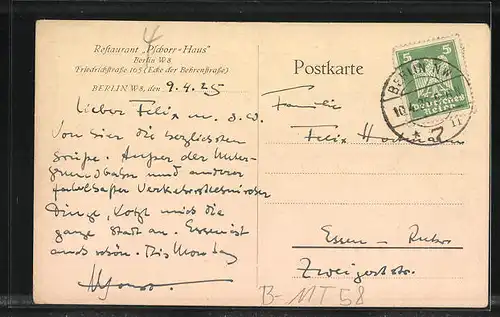 4
Restaurant „Pschorr=Haus"
Berlin W8
Friedrichstraße 165 (Ecke der Behrenstraße)
BERLIN W8, den 9.4.25
Lieber Felix
Von hier die herzlichsten
Grüße. Außer der Unter-
grundbahn und anderer
fabelhafter
Dinge, kotzt mich die
ganze Stadt an. Essen ist
auch schön. Bis Montag
Postkarte
Familie
Felix
Essen - Ruhr
Zweigertstr.
5 5
Deutsches
Reich
BERLIN
10
B-MT58